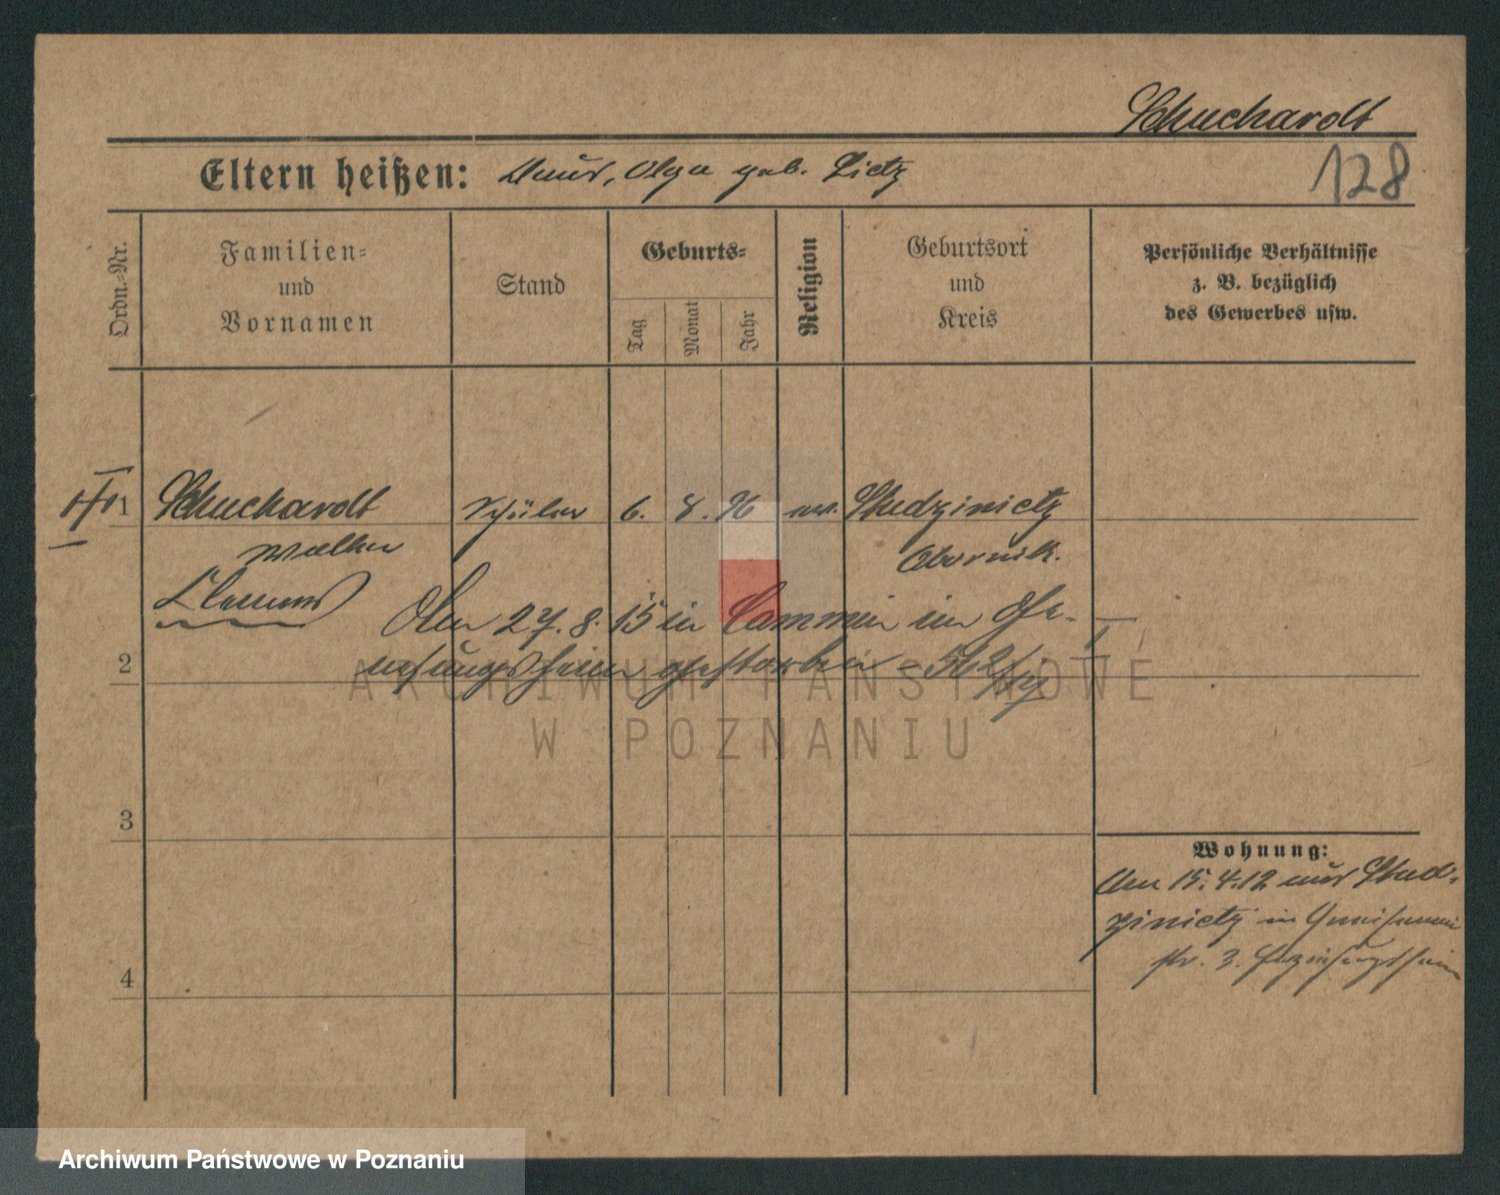 Schuchardt
128
Eltern heißen: Olga geb. Lietz
Ordn.-Nr.
Familien-
und
Vornamen
Stand
Geburts-
Tag
Monat
Jahr
Religion
Geburtsort
und
Kreis
Persönliche Verhältnisse
z. B. bezüglich
des Gewerbes usw.
1 Schuchardt Schüler 6. 8. 96 ev. Studzinietz
Walther Obornik.
Clemens
Am 27. 8. 15 in Cammin im Ge-
2 nesungsheim gestorben
3
4
Wohnung:
Am 15.4.12 aus Stud-
zinietz in Gneisenau
str. 3. Erziehungsheim
ARCHIWUM PAŃSTWOWE
W POZNANIU
Archiwum Państwowe w Poznaniu